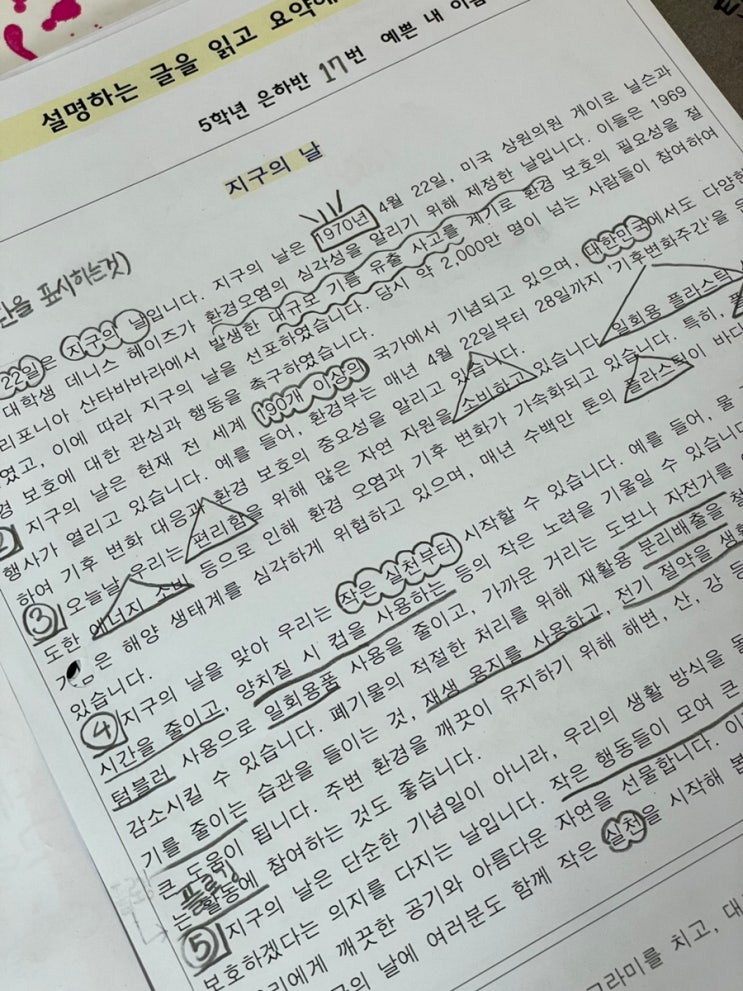 설명하는 글을 읽고 요약해
5학년 은하반 17번 예쁜 내 이름
지구의 날
표시하는것)
22일은 지구의 날입니다. 지구의 날은 1970년 4월 22일, 미국 상원의원 게이로 닐슨과
대학생 데니스 헤이즈가 환경오염의 심각성을 알리기 위해 제정한 날입니다. 이들은 1969
리포니아 산타바바라에서 발생한 대규모 기름 유출 사고를 계기로 환경 보호의 필요성을 절
였고, 이에 따라 지구의 날을 선포하였습니다. 당시 약 2,000만 명이 넘는 사람들이 참여하여
경 보호에 대한 관심과 행동을 촉구하였습니다.
2 지구의 날은 현재 전 세계 190개 이상의 국가에서 기념되고 있으며, 대한민국에서도 다양한
행사가 열리고 있습니다. 예를 들어, 환경부는 매년 4월 22일부터 28일까지 '기후변화주간'을 운
하여 기후 변화 대응과 환경 보호의 중요성을 알리고 있습니다.
3 오늘날 우리는 편리함을 위해 많은 자연 자원을 소비하고 있습니다. 일회용 플라스틱
도한 에너지 소비 등으로 인해 환경 오염과 기후 변화가 가속화되고 있습니다. 특히, 플
은 해양 생태계를 심각하게 위협하고 있으며, 매년 수백만 톤의 플라스틱이 바다
있습니다.
4 지구의 날을 맞아 우리는 작은 실천부터 시작할 수 있습니다. 예를 들어, 물
시간을 줄이고, 양치질 시 컵을 사용하는 등의 작은 노력을 기울일 수 있습니다
텀블러 사용으로 일회용품 사용을 줄이고, 가까운 거리는 도보나 자전거를
감소시킬 수 있습니다. 폐기물의 적절한 처리를 위해 재활용 분리배출을 철
기를 줄이는 습관을 들이는 것, 재생 용지를 사용하고, 전기 절약을 생활
큰 도움이 됩니다. 주변 환경을 깨끗이 유지하기 위해 해변, 산, 강 등
플로깅
는 활동에 참여하는 것도 좋습니다.
5 지구의 날은 단순한 기념일이 아니라, 우리의 생활 방식을 돌
보호하겠다는 의지를 다지는 날입니다. 작은 행동들이 모여 큰
리에게 깨끗한 공기와 아름다운 자연을 선물합니다. 이
구의 날에 여러분도 함께 작은 실천을 시작해 봅
그라미를 치고, 대